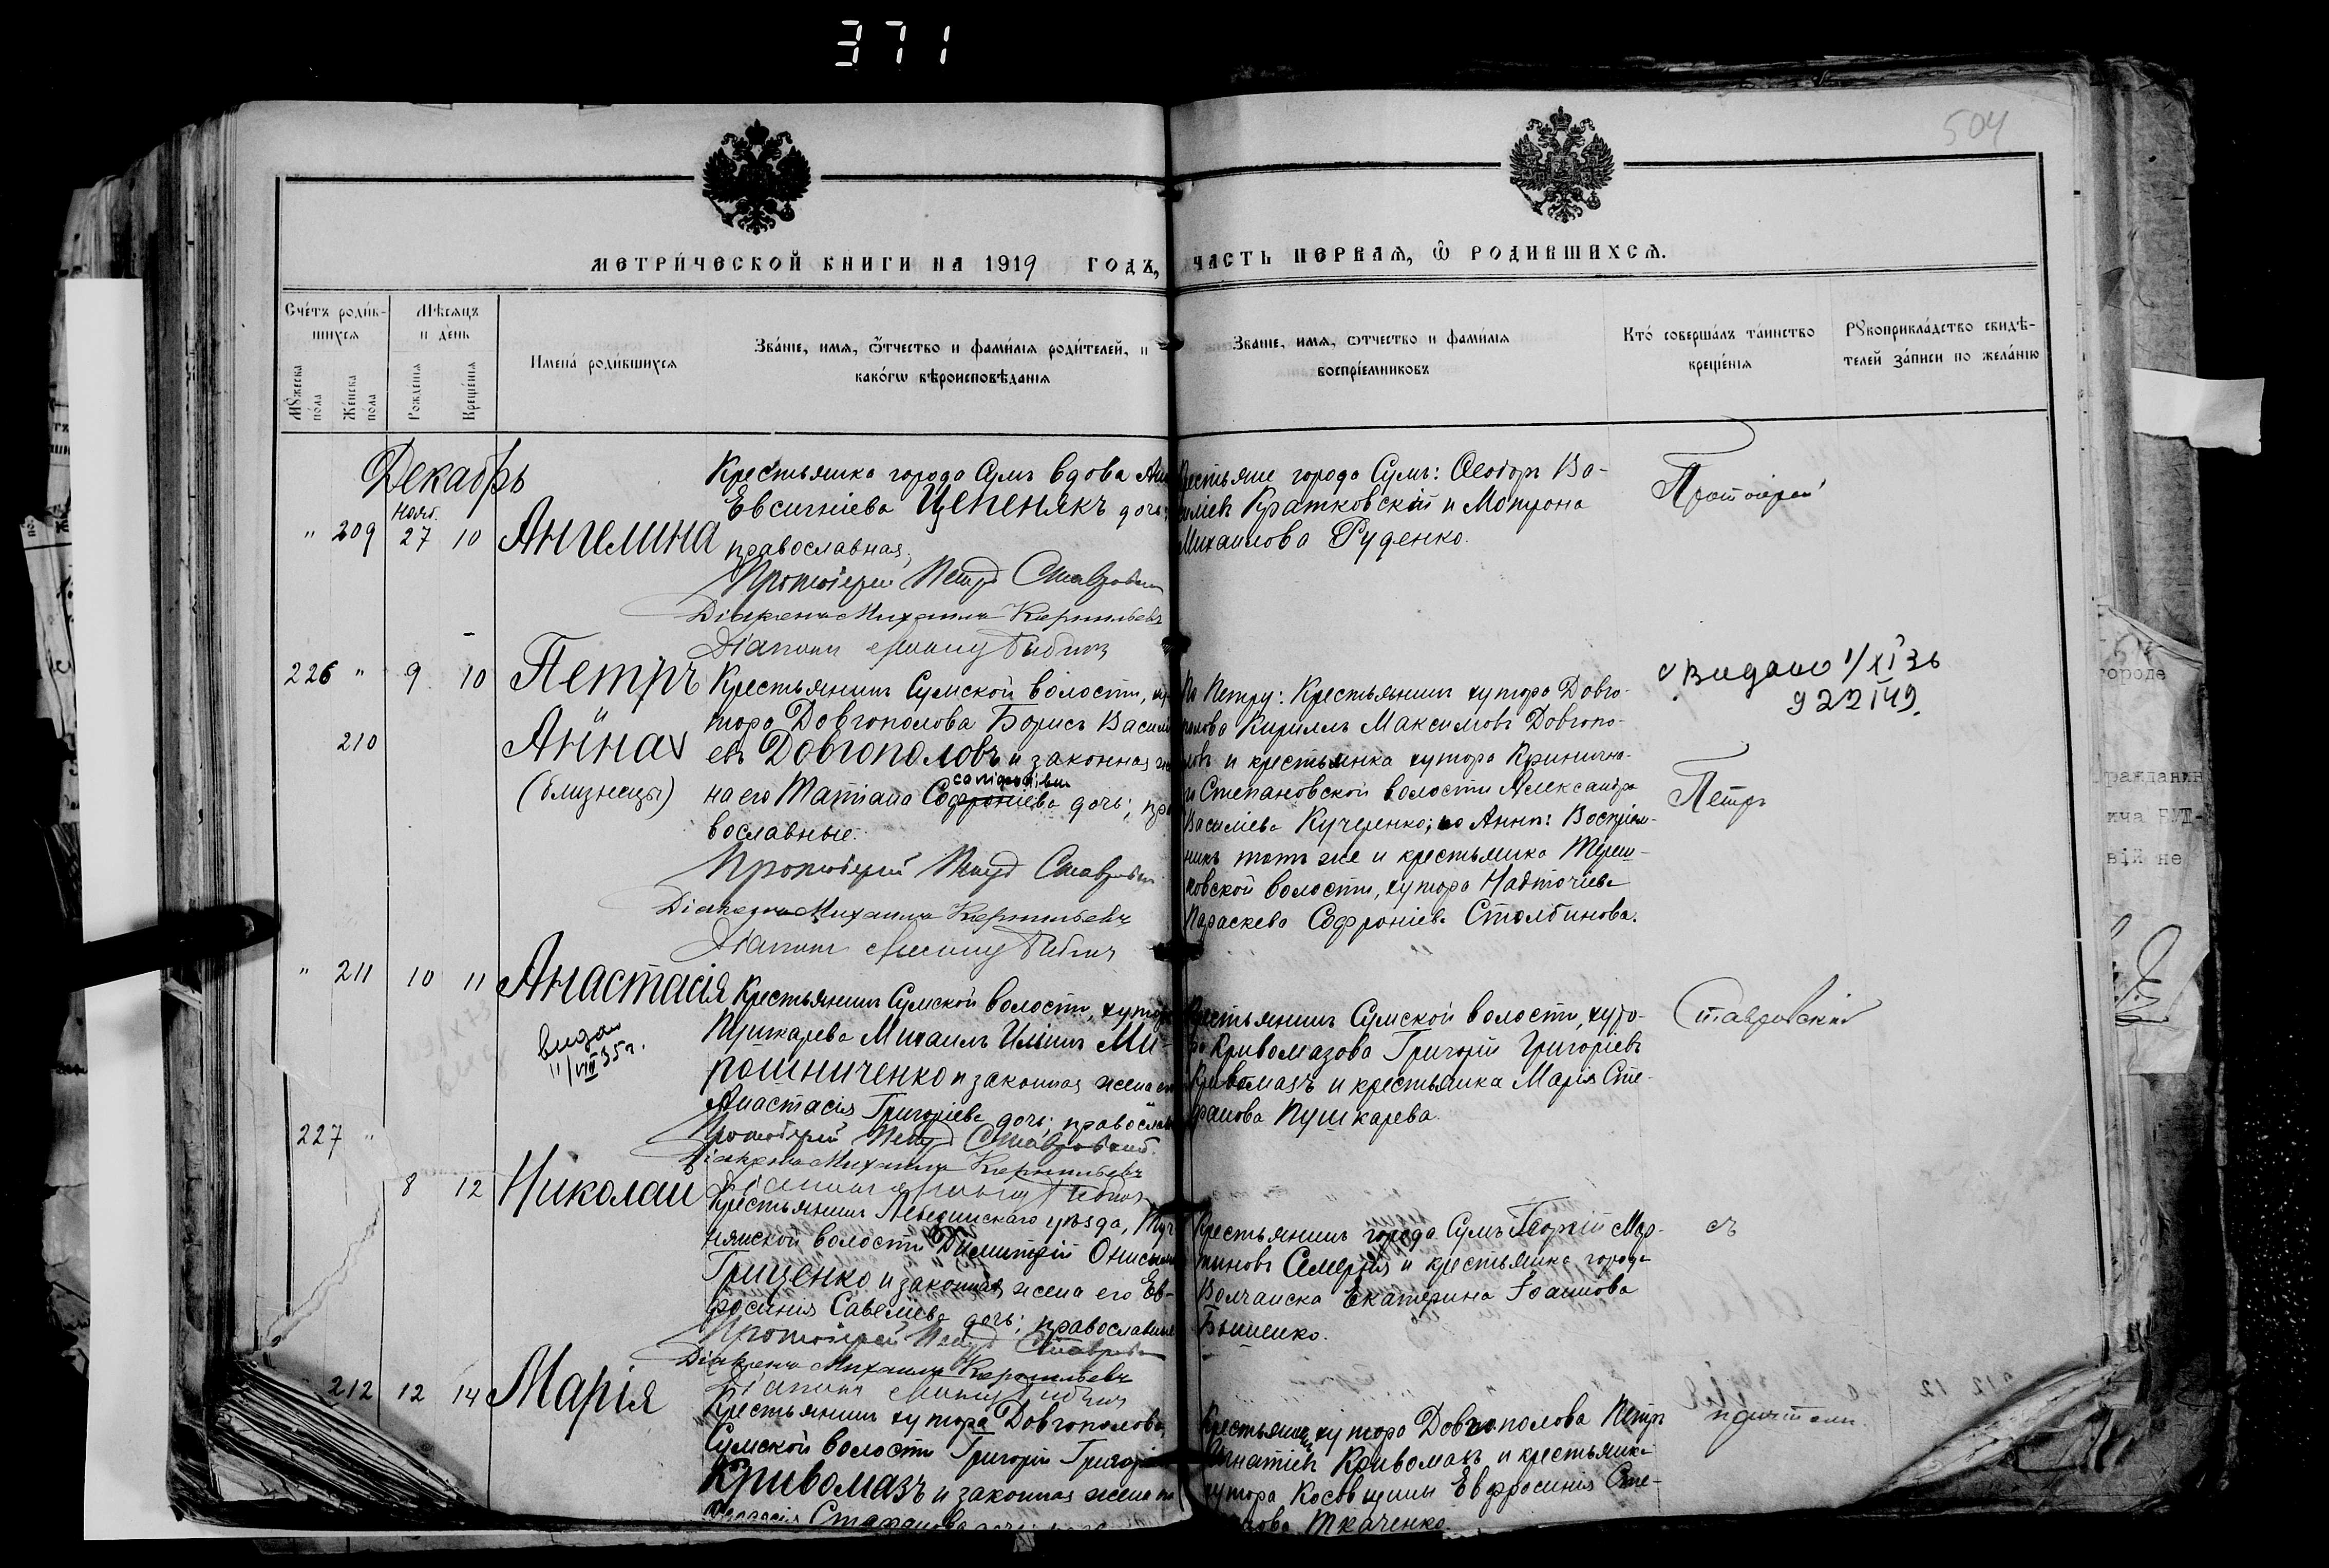 371
504
МЕТРИЧЕСКОЙ КНИГИ НА 1919 ГОДЪ, ЧАСТЬ ПЕРВАЯ, Ѿ РОДИВШИХСЯ.
Счетъ родив-
шихся
Мужеска
пола
Женска
пола
Мѣсяцъ
и день
Рожденія
Крещенія
Имена родившихся
Званіе, имя, ѿтчество и фамилія родителей, и
какогѡ вѣроисповѣданія
Званіе, имя, ѿтчество и фамилія
воспріемниковъ
Кто совершалъ таинство
крещенія
Рукоприкладство свидѣ-
телей записи по желанію
Декабрь
" 209
Нояб.
27 10
Ангелина
Крестьянка города Сумъ вдова
Евсигніева Цепенякъ дочь;
православная.
Протоіерей Петръ Ставровскій
Діаконъ Михаилъ Корнильевъ
Крестьяне города Сумъ: Ѳеодоръ Ва-
силіевъ Кратковскій и Матрона
Михаилова Руденко.
Протоіерей
226 " 9 10
Петръ
210
Анна
(близнецы)
Крестьянинъ Сумской волости, ху-
тора Довгополова Борисъ Василі-
евъ Довгополовъ и законная же-
на его Татіана Софроніева дочь; пра-
вославные.
Протоіерей Петръ Ставровскій
Діаконъ Михаилъ Корнильевъ
По Петру: Крестьянинъ хутора Довго-
полова Кириллъ Максимовъ Довгопо-
ловъ и крестьянка хутора Кринично-
и Степановской волости Александра
Василіева Кучеренко; по Аннѣ: Воспріем-
никъ тотъ же и крестьянка Тереш-
ковской волости, хутора Надточіева
Параскева Софроніева Столбинова.
Видано 1/XI 36
922149.
Петръ
" 211 10 11
Анастасія
видан
11/VIII 35г.
Крестьянинъ Сумской волости, хутора
Пушкарева Михаилъ Ильинъ Ми-
рошниченко и законная жена его
Анастасія Григоріева дочь; православ
Протоіерей Петръ Ставровскій
Діаконъ Михаилъ Корнильевъ
Крестьянинъ Сумской волости, хуто-
ра Кривомазова Григорій Григоріевъ
Кривомазъ и крестьянка Марія Сте-
фанова Пушкарева.
Ставровскій
227 "
8 12
Николай
Крестьянинъ Лебединскаго уѣзда,
волости Димитрій
Гриценко и законная жена его Ев-
фросинія Савеліева дочь; православные
Протоіерей Петръ
Діаконъ Михаилъ Корнильевъ
Крестьянинъ города Сумъ Георгій Мар-
тиновъ и крестьянка города
Волчанска Екатерина Іоаннова
съ
212 12 14
Марія
Крестьянинъ хутора Довгополова,
Сумской волости Григорій
Кривомазъ и законная жена
Стефанова дочь;
Крестьянинъ хутора Довгополова Петръ
Игнатіевъ Кривомазъ и крестьянка
хутора Косовщины Евфросинія Сте-
фанова Ткаченко.
причтомъ.
городе